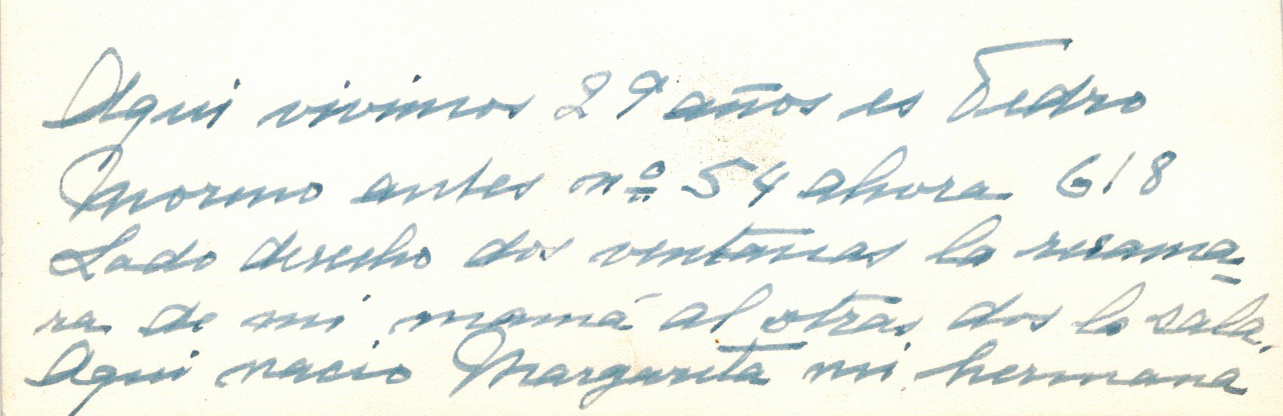 Aqui vivimos 29 años es Pedro
Moreno antes nº 54 ahora 618
Lado derecho dos ventanas la recama-
ra de mi mamá al otras dos la sala.
Aqui nacio Margarita mi hermana